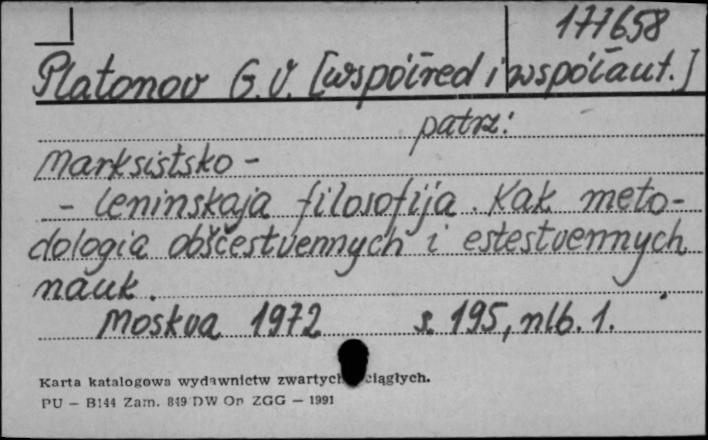 177658
Platonov G.V. [współred i współaut.]
patrz:
Marksistsko -
- leninskaja filosofija. Kak meto-
dologia obščestvennych i estestvennych
nauk.
Moskva 1972 s. 195, nlb. 1.
Karta katalogowa wydawnictw zwartych ciągłych.
PU — B144 Zam. 849 DW Op ZGG — 1991